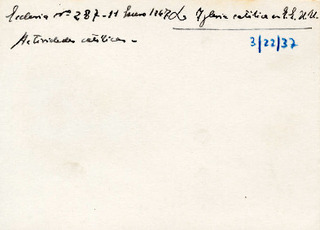 Ecclesia nº 287 - 11 Enero 1947 Iglesia católica en E.E. U.U.
Actividades católicas -
3/22/37